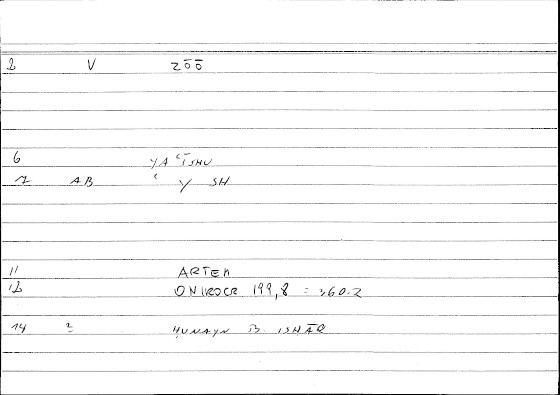 2 V 200
6 YA ʿĪSHU
7 AB ʿ Y SH
11 ARTEM
12 ONIROCR 199,8 = 360.2
14 2 ḤUNAYN B. ISHĀQ